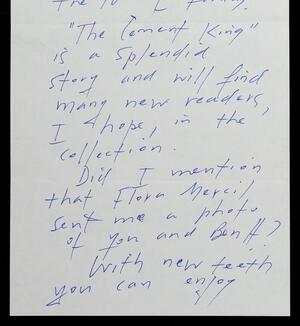 "The Cement King"
is a splendid
story and will find
many new readers,
I hope, in the
collection.
Did I mention
that Flora
sent me a photo
of you and
With new teeth
you can enjoy